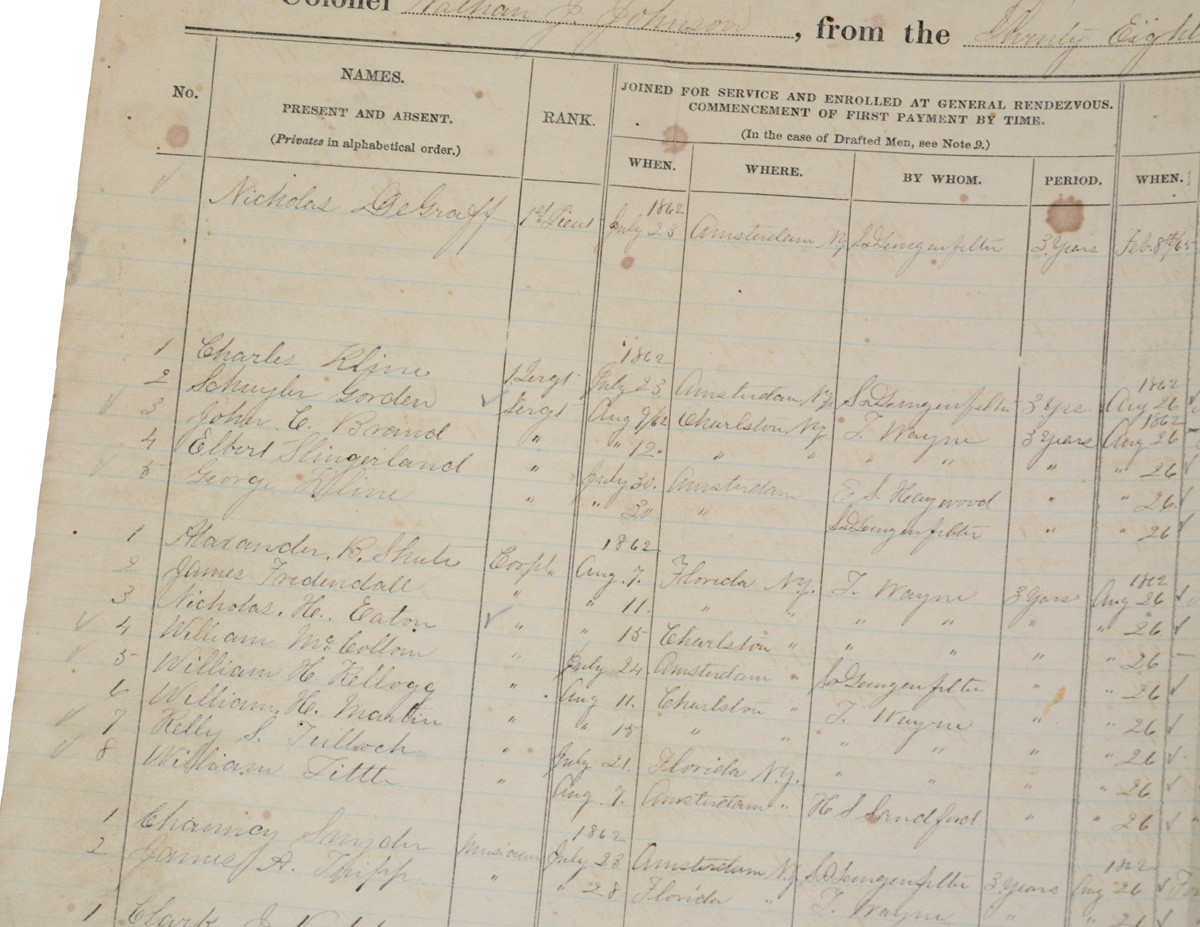 Colonel Nathan J. Johnson, from the Twenty Eight
No.
NAMES.
PRESENT AND ABSENT.
(Privates in alphabetical order.)
RANK.
JOINED FOR SERVICE AND ENROLLED AT GENERAL RENDEZVOUS.
COMMENCEMENT OF FIRST PAYMENT BY TIME.
(In the case of Drafted Men, see Note 9.)
WHEN. WHERE. BY WHOM. PERIOD. WHEN.
1862
Nicholas DeGraff 1st Lieut July 23 Amsterdam NY 3 Years Feb. 8th/65
1862 1862
1 Charles Kline 1 Sergt July 23 Amsterdam NY 3 Yrs Aug 26
1862
2 Schuyler Gorden Sergt Aug 9/62 Charlston NY T. Wayne 3 Years Aug 26
3 John C. Brand " " 12 " " " " " " 26
4 Elbert Slingerland " July 30. Amsterdam E. S. Heaywood " " 26
5 George Kline " " 30 " " " 26
1862 1862
1 Alexander B. Shuts Corpl. Aug. 7. Florida N.Y. T. Wayne 3 Years Aug 26
2 James Fredendall " " 11 " " " " " " 26
3 Nicholas. H. Eaton " " 15 Charlston " " " " " 26
4 William McCollom " July 24 Amsterdam " " " 26
5 William H. Kellogg " Aug 11. Charlston " T. Wayne " " 26
6 William. H. Martin " " 15 " " " " " " 26
7 Kelly S. Tulloch " July 21. Florida N.Y. " " " " 26
8 William Tittle " Aug 7. Amsterdam " H S Sandford " " 26
1862 1862
1 Chauncy Snyder Musician July 23 Amsterdam N.Y 3 Years Aug 26
2 James A. Thipp " " 28 Florida " T. Wayne " " 26
1 Clark J.